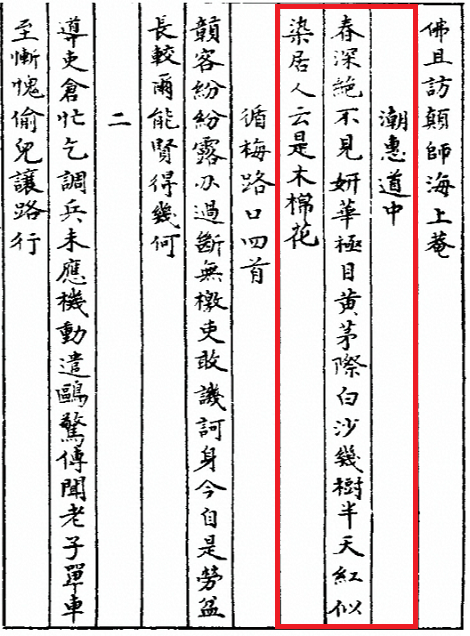 佛且訪顛師海上菴
潮惠道中
春深絶不見妍華極目黄茅際白沙幾樹半天紅似
染居人云是木棉花
循梅路口四首
贑客紛紛露刃過斷無檄吏敢譏訶身今自是勞盆
長較爾能賢得幾何
二
導吏倉忙乞調兵未應機動遣鷗驚傳聞老子單車
至慚愧偷兒讓路行